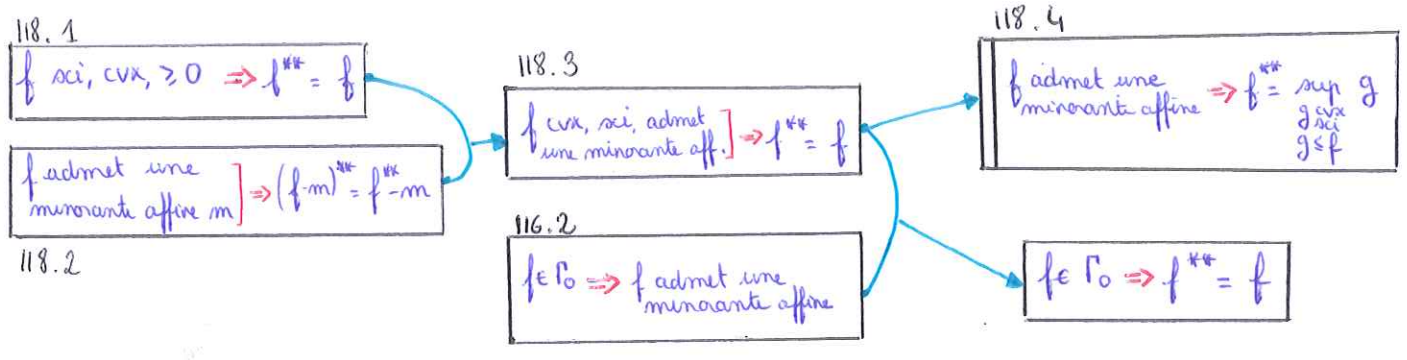 118.1
f sci, cvx, ≥ 0 ⇒ f** = f
f admet une
minorante affine m] ⇒ (f-m)** = f** - m
118.2
118.3
f cvx, sci, admet
une minorante aff.] ⇒ f** = f
116.2
f ∈ Γ₀ ⇒ f admet une
minorante affine
118.4
f admet une
minorante affine ⇒ f** = sup g
g cvx
sci
g ≤ f
f ∈ Γ₀ ⇒ f** = f